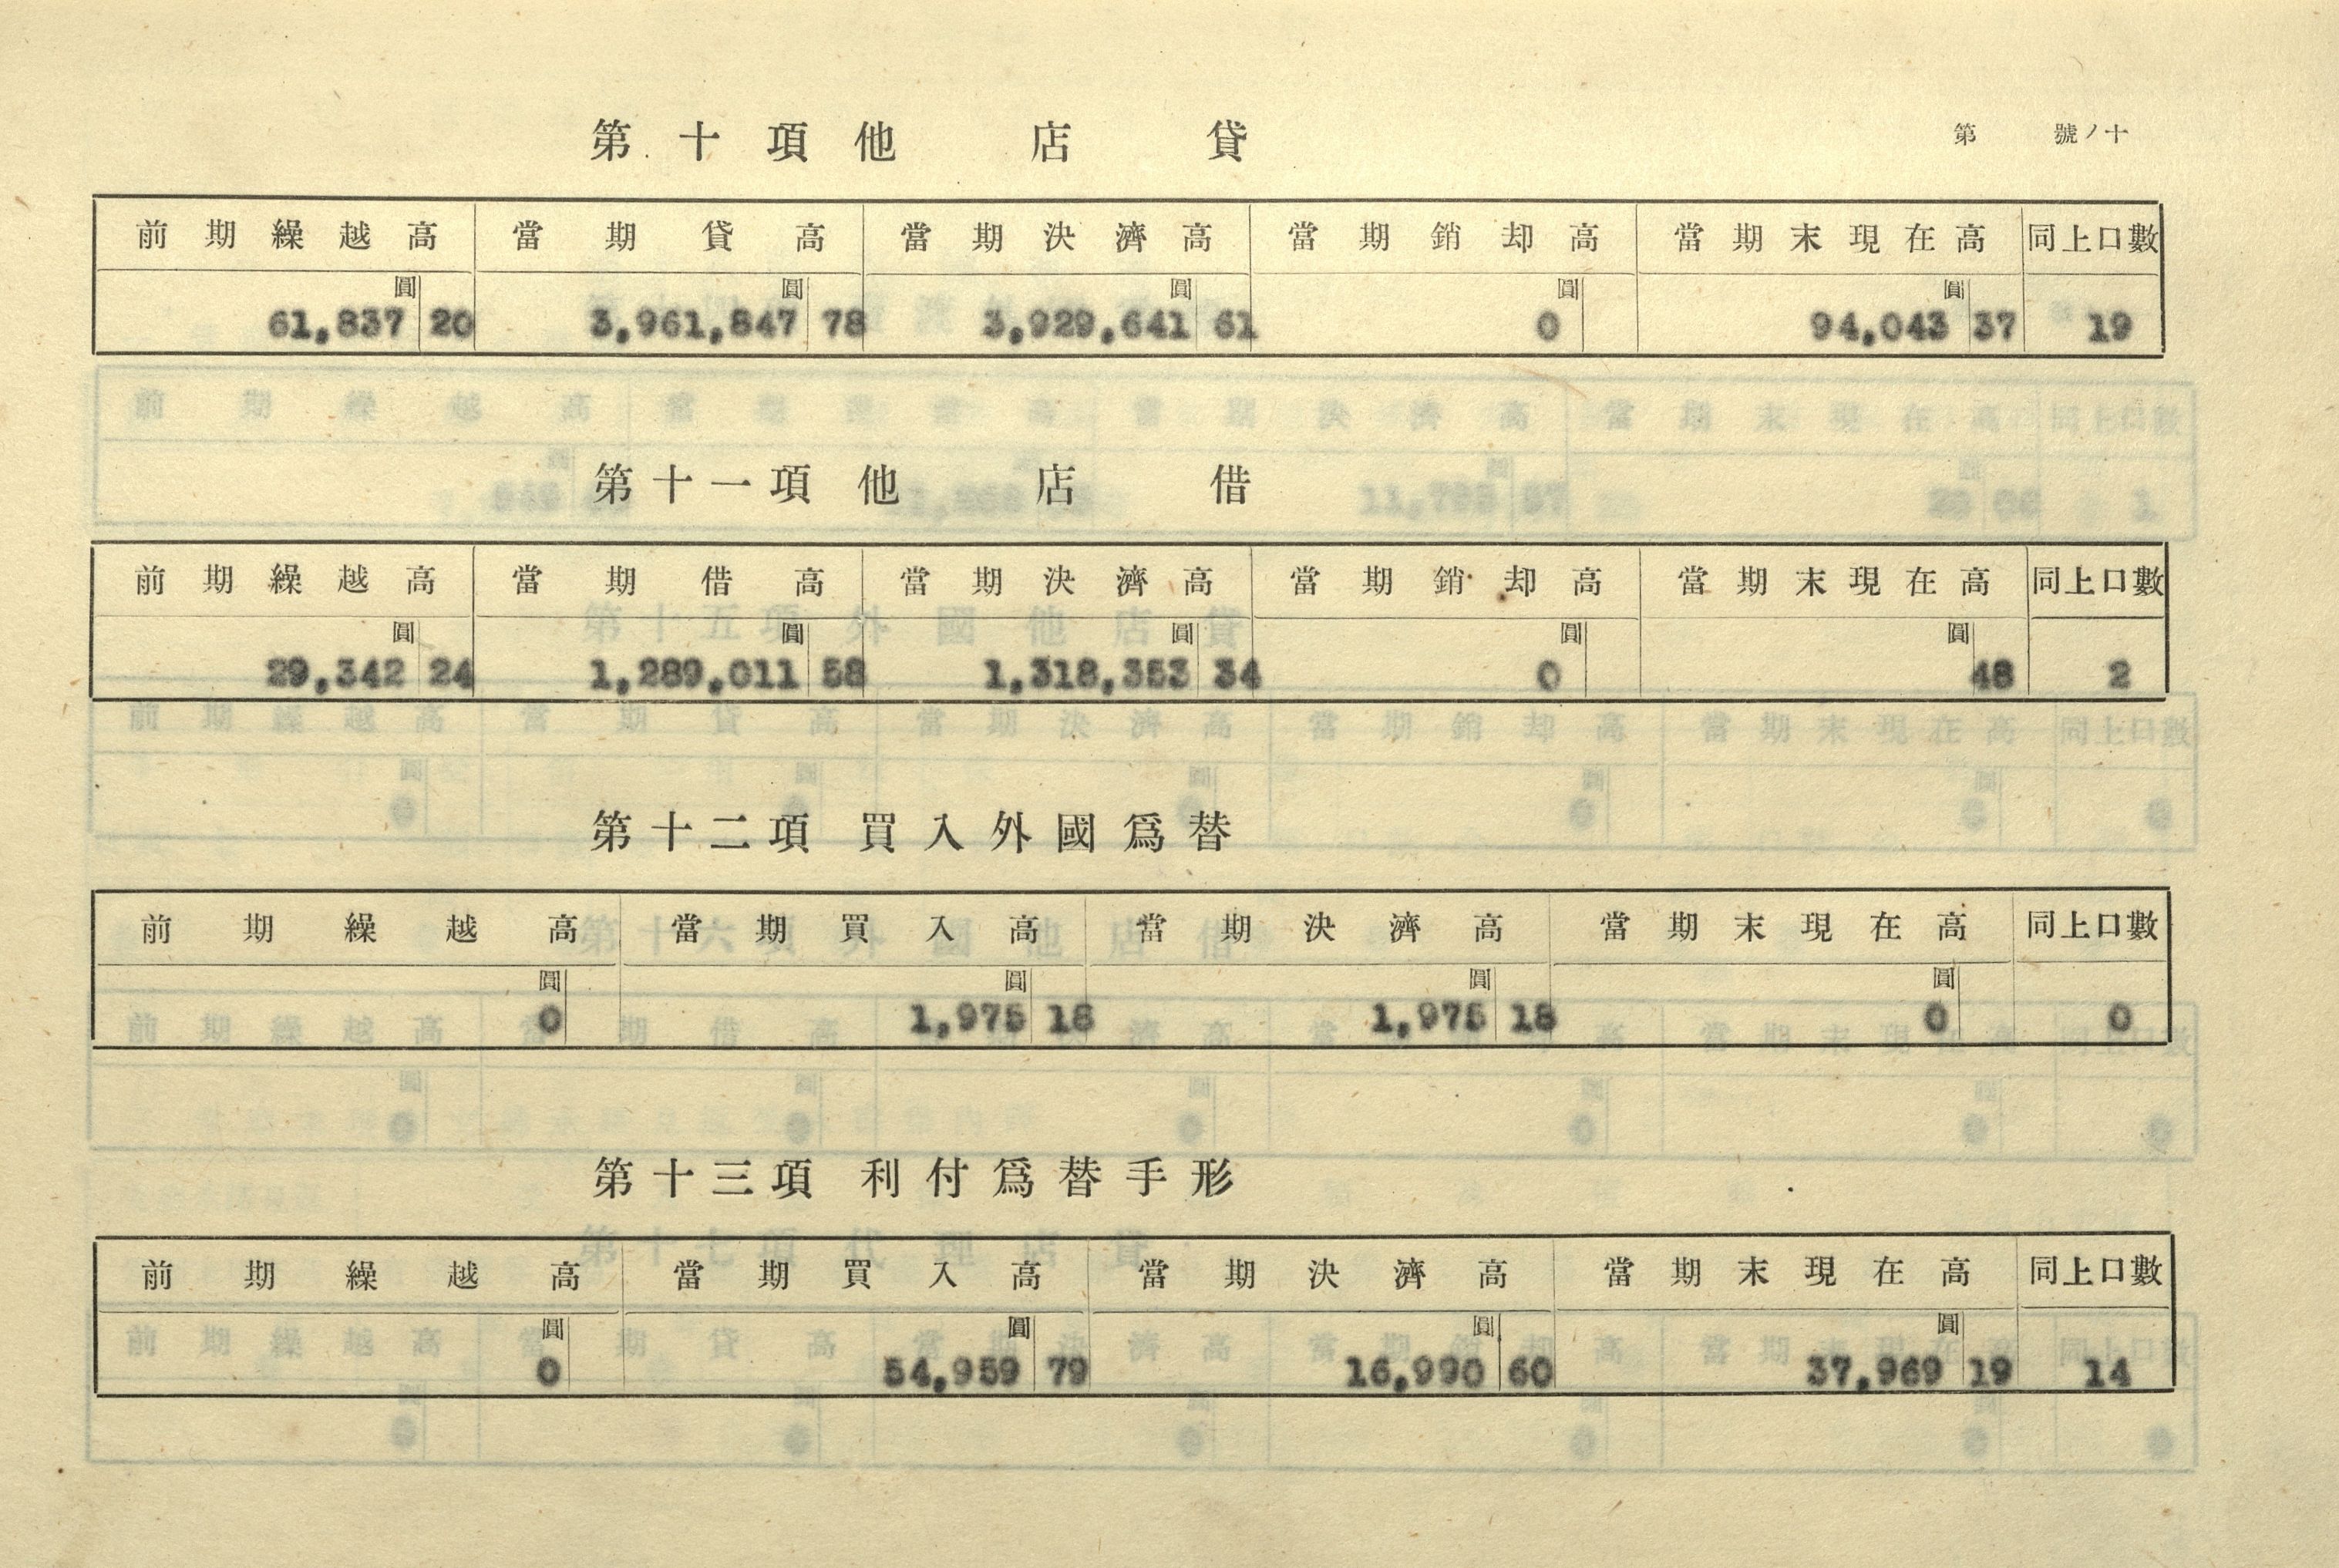 第十項 他店貸
第 號ノ十
前期繰越高 當期貸高 當期決濟高 當期銷却高 當期末現在高 同上口數
圓 圓 圓 圓 圓
61,837 20 3,961,847 78 3,929,641 61 0 94,043 37 19
第十一項 他店借
前期繰越高 當期借高 當期決濟高 當期銷却高 當期末現在高 同上口數
圓 圓 圓 圓 圓
29,342 24 1,289,011 58 1,318,353 34 0 48 2
第十二項 買入外國爲替
前期繰越高 當期買入高 當期決濟高 當期末現在高 同上口數
圓 圓 圓 圓
0 1,975 18 1,975 18 0 0
第十三項 利付爲替手形
前期繰越高 當期買入高 當期決濟高 當期末現在高 同上口數
圓 圓 圓 圓
0 54,959 79 16,990 60 37,969 19 14